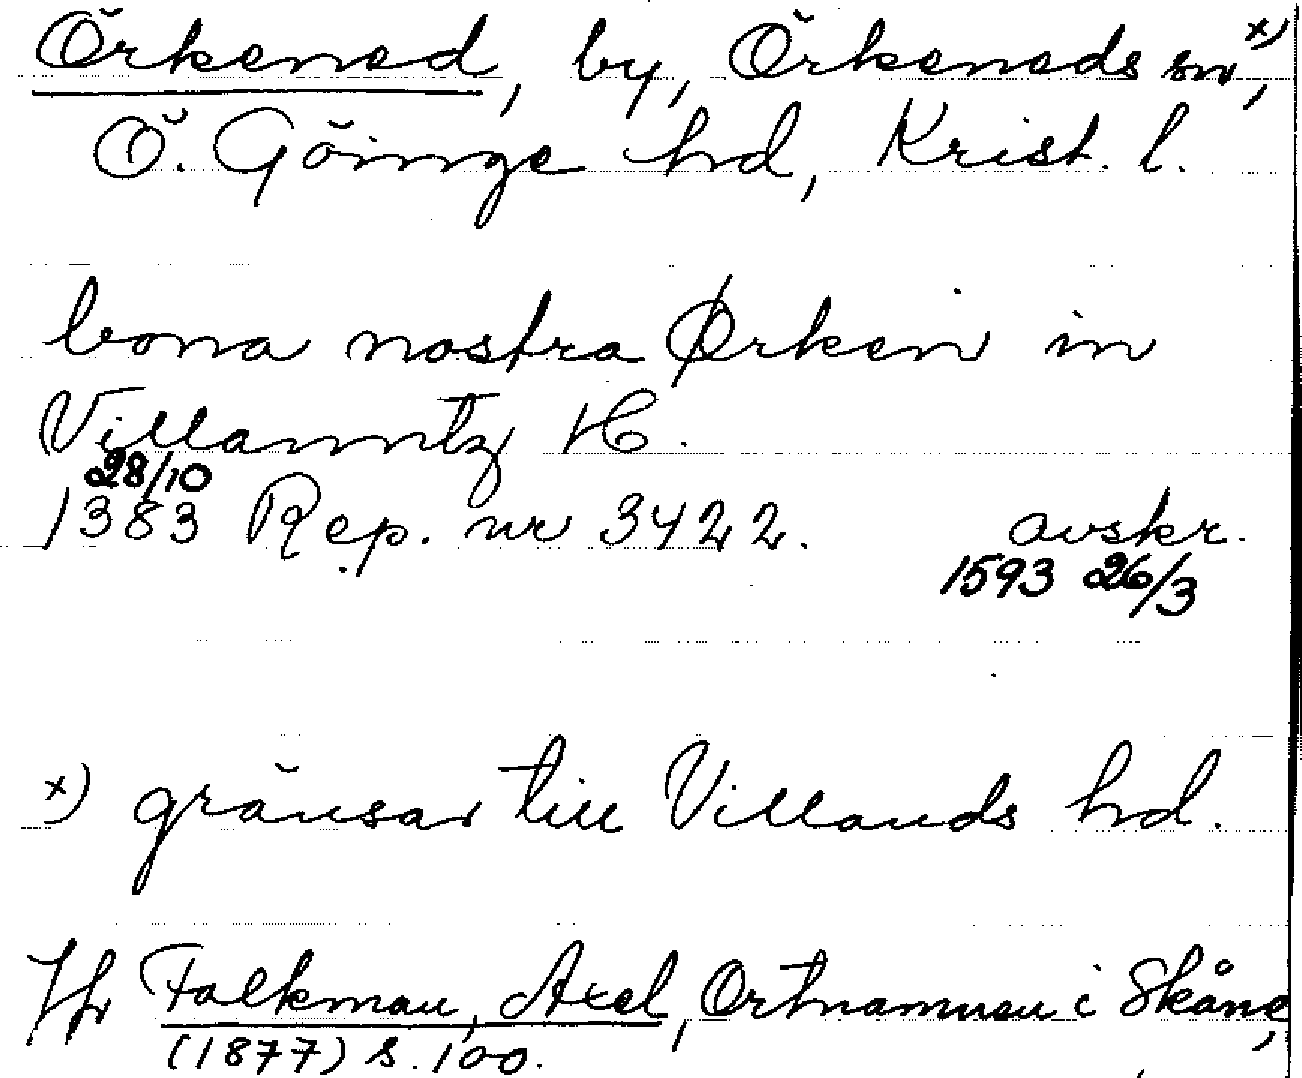 Örkened, by, Örkeneds sn x),
Ö. Göinge hd, Krist. l.
bona nostra Ørken in
Villanntz H.
28/10
1383 Rep. nr 3422. avskr.
1593 26/3
x) gränsar till Villands hd.
Jfr Falkman, Axel, Ortnamnen i Skåne,
(1877) s. 100.